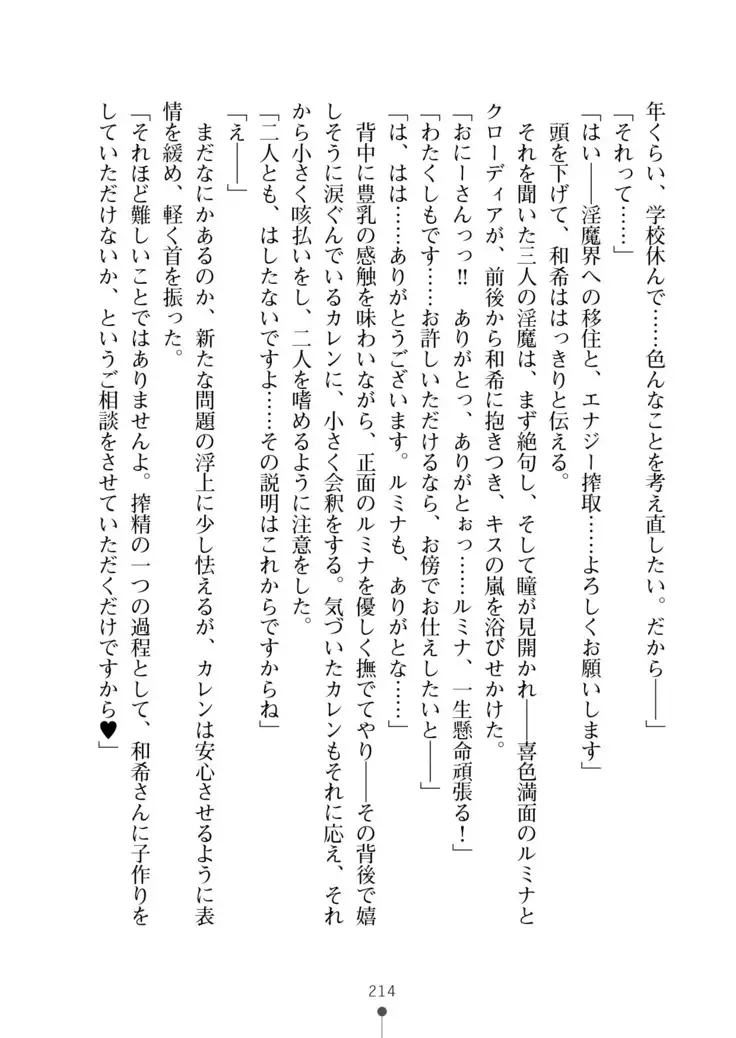 年くらい、学校休んで……色んなことを考え直したい。だから――」
「それって……」
「はい――淫魔界への移住と、エナジー搾取……よろしくお願いします」
　頭を下げて、和希ははっきりと伝える。
　それを聞いた三人の淫魔は、まず絶句し、そして瞳が見開かれ――喜色満面のルミナと
クローディアが、前後から和希に抱きつき、キスの嵐を浴びせかけた。
「おにーさんっっ!!　ありがとっ、ありがとぉっ……ルミナ、一生懸命頑張る！」
「わたくしもです……お許しいただけるなら、お傍でお仕えしたいと――」
「は、はは……ありがとうございます。ルミナも、ありがとな……」
　背中に豊乳の感触を味わいながら、正面のルミナを優しく撫でてやり――その背後で嬉
しそうに涙ぐんでいるカレンに、小さく会釈をする。気づいたカレンもそれに応え、それ
から小さく咳払いをし、二人を嗜めるように注意をした。
「二人とも、はしたないですよ……その説明はこれからですからね」
「え――」
　まだなにかあるのか、新たな問題の浮上に少し怯えるが、カレンは安心させるように表
情を緩め、軽く首を振った。
「それほど難しいことではありませんよ。搾精の一つの過程として、和希さんに子作りを
していただけないか、というご相談をさせていただくだけですから♥」
214